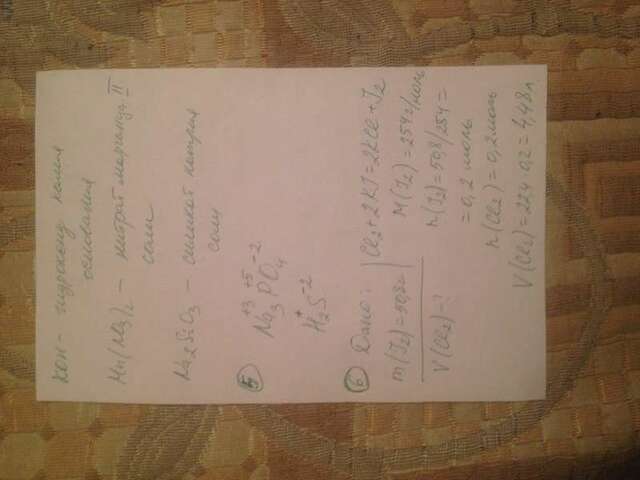 KOH - гидроксид калия
основания
Mn(NO3)2 - нитрат марганца II
соли
Na2SiO3 - силикат натрия
соли
5
Na3+3P+5O4-2
H2+S-2
6 Дано:
m(J2)=50,8г
V(Cl2)-?
Cl2+2KJ=2KCl+J2
M(J2)=254г/моль
n(J2)=50,8/254=
=0,2 моль
n(Cl2)=0,2моль
V(Cl2)=22,4·0,2=4,48л